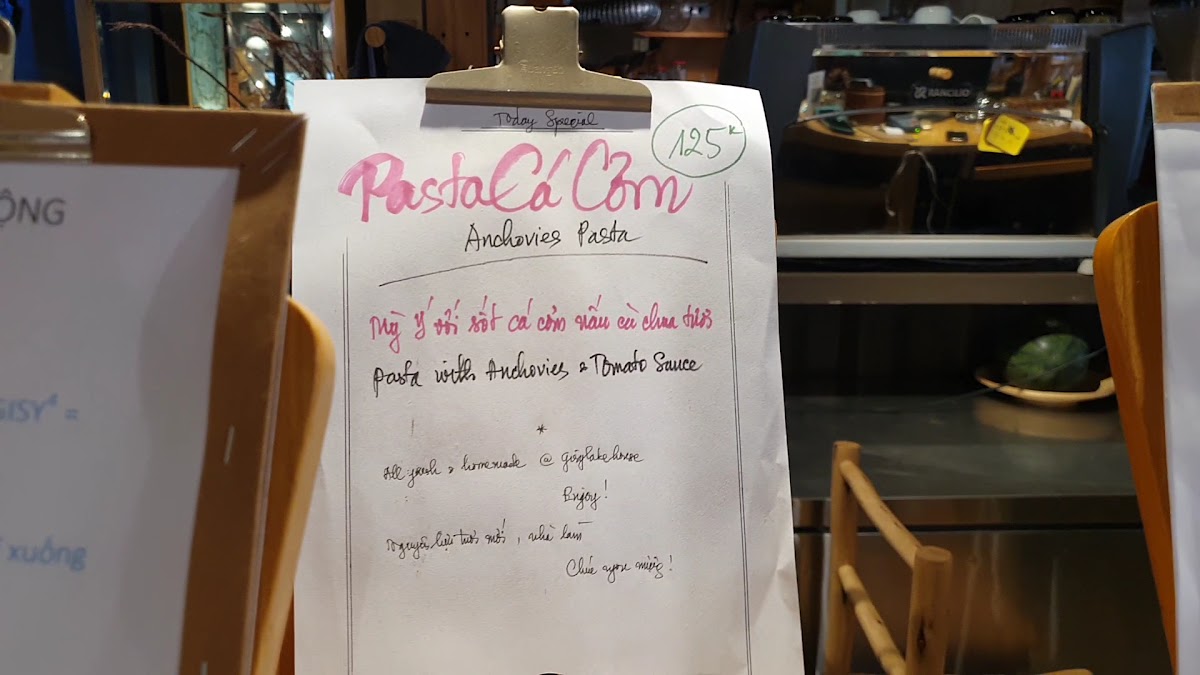 Today Special
125K
Pasta Cá Cơm
Anchovies Pasta
Mỳ Ý với sốt cá cơm nấu cà chua tươi
Pasta with Anchovies & Tomato Sauce
*
All fresh & homemade @
Enjoy!
Nguyên liệu tươi mới, nhà làm
Chúc ngon miệng!
RANCILIO
ỘNG
GISY⁴ =
xuống